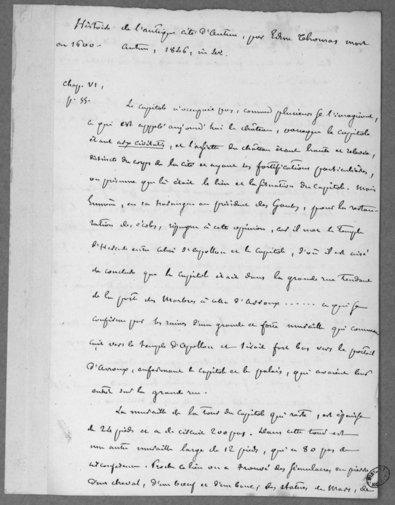 Histoire de l'antique cité d'Autun, par Edme Thomas mort
en 1600. Autun, 1846, in 4o.
Chap. VI,
p. 55.
Le capitole n'occupait pas, comme plusieurs se l'imaginent,
ce qui est appelé aujourd'hui le château, parceque le capitole
étant arx civitatis, et l'assiette du château étant haute et relevée,
distincte du corps de la cité et ayant ses fortifications particulières,
on présume que là était le lieu et la situation du capitole. Mais
Eumène, en sa harangue au président des Gaules, pour la restau-
ration des écoles, répugne à cette opinion, car il met le temple
d'Hercule entre celui d'Apollon et le Capitole, d'où il est aisé
de conclure que le capitole était dans la grande rue tendant
de la porte des Marbres à celle d'Arroux ...... ce qui se
confirme par les ruines d'une grande et forte muraille qui commen-
çait vers le temple d'Apollon et tirait fort bas vers le portail
d'Arroux, enfermant le capitole et le palais, qui avaient leur
entrée sur la grande rue.
La muraille de la tour du capitole qui reste, est épaisse
de 24 pieds et a de circuit 200 pas. Dans cette tour est
une autre muraille large de 12 pieds, qui a 80 pas de
circonférence. Proche ce lieu on a trouvé des simulacres en pierre
d'un cheval, d'un bœuf et d'un bouc, des statues de Mars, de